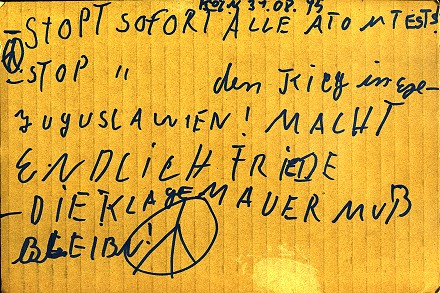 KÖLN 31.08.95
- STOPT SOFORT ALLE ATOMTESTS!
- STOP " den Kieg in
JUGUSLAWIEN! MACHT
ENDLICH FRIEDE
- DIE KLAGEMAUER MUß
BLEIBN!